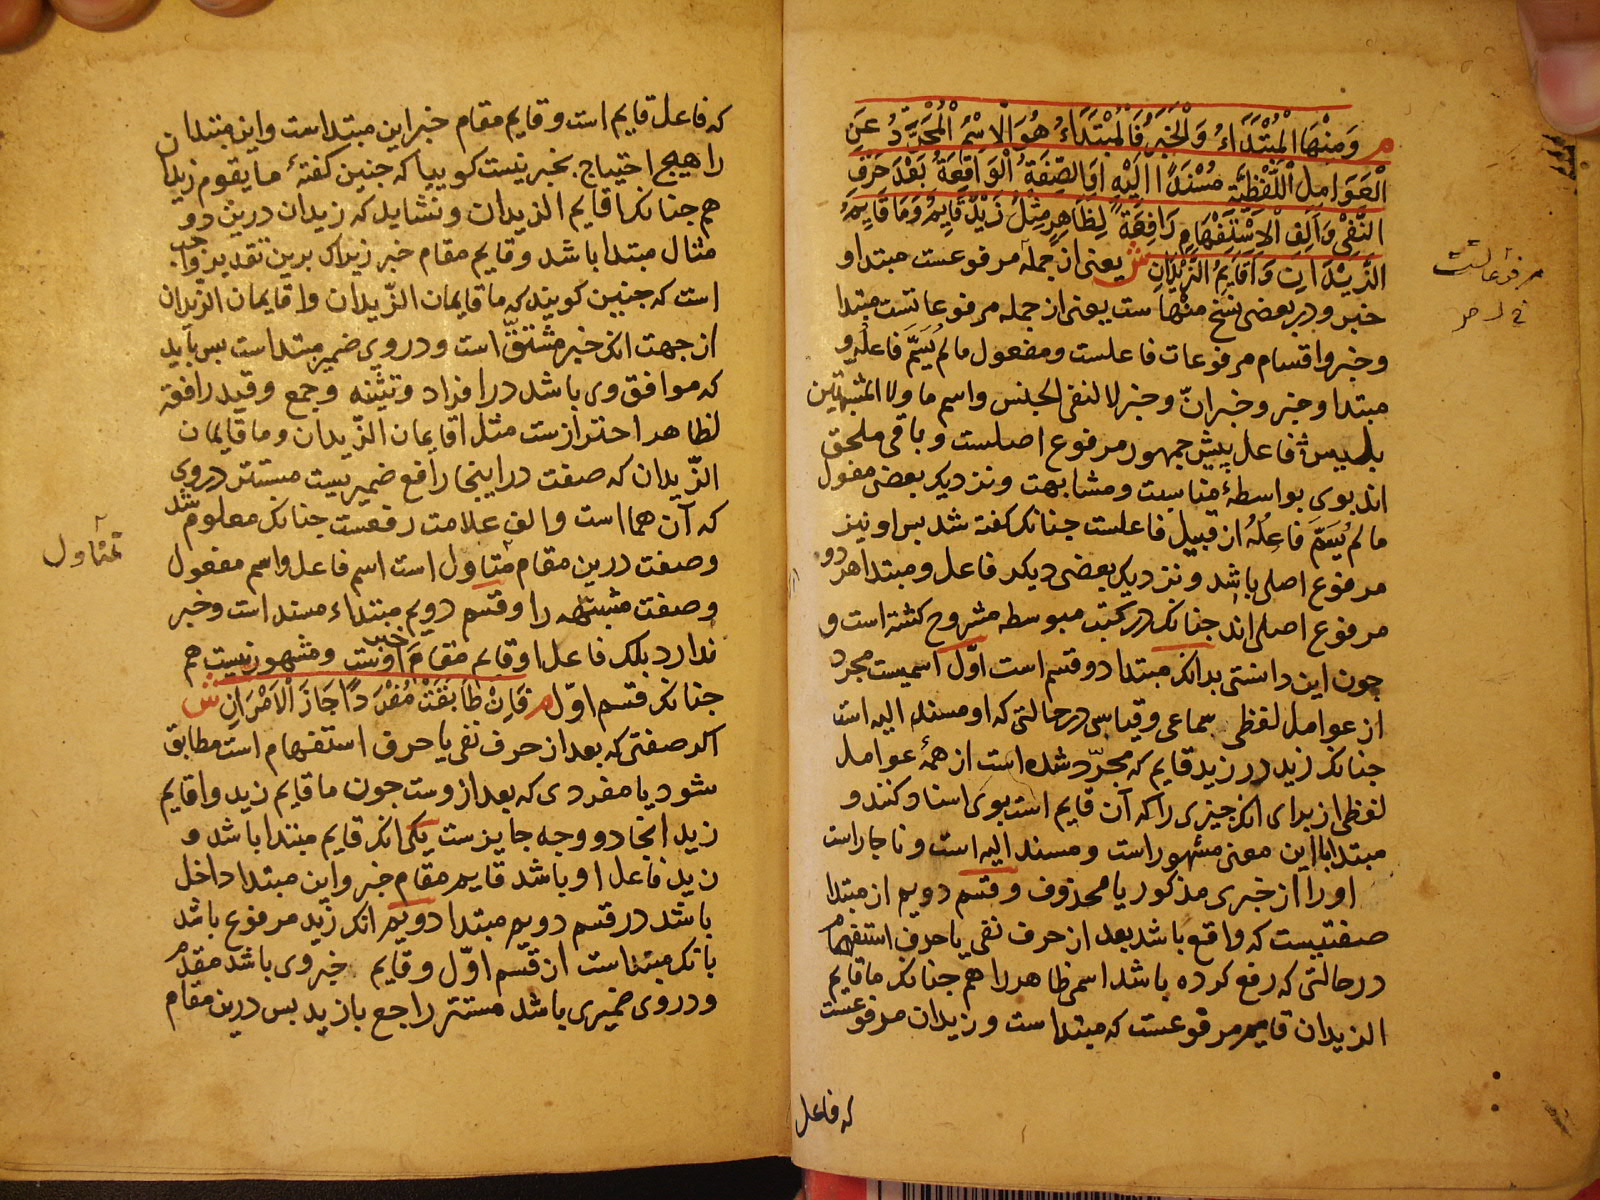 م وَمِنْهَا الْمُبْتَدَاءُ وَالْخَبَرُ فَالْمُبْتَدَاءُ هُوَ الْاِسْمُ الْمُجَرَّدُ عَنِ
الْعَوَامِلِ اللَّفْظِيَّةِ مُسْنَدًا اِلَيْهِ اَوِ الصِّفَةُ الْوَاقِعَةُ بَعْدَ حَرْفِ
النَّفْىِ وَاَلِفِ الْاِسْتِفْهَامِ رَافِعَةً لِظَاهِرٍ مِثْلُ زَيْدٌ قَايِمٌ وَمَا قَايِمٌ
الزَّيْدَانِ وَاَقَايِمُ الزَّيْدَانِ ش يعنى از جملهٔ مرفوعست مبتدا و
خبر و در بعضى نسخ منهاست يعنى از جمله مرفوعاتست مبتدا
و خبر و اقسام مرفوعات فاعلست و مفعول ما لم يُسَمَّ فاعلُه و
مبتدا و خبر و خبر انّ و خبر لا لنفى الجنس و اسم ما و لا المشبهتين
بليس فاعل پيش جمهور مرفوع اصلست و باقى ملحق
اند بوى بواسطهٔ مناسبت و مشابهت و نزديك بعضى مفعول
ما لم يُسَمَّ فَاعِلُهُ از قبيل فاعلست جنانكه كفته شد بس او نيز
مرفوع اصلى باشد و نزديك بعضى ديكر فاعل و مبتدا هر دو
مرفوع اصلى اند جنانكه در كتب مبسوطه مشروح كشته است و
جون اين دانستى بدانكه مبتدا دو قسم است اوّل اسميست مجرد
از عوامل لفظى سماعى و قياسى در حالتى كه او مسند اليه است
جنانكه زيد در زيد قايم كه مجرّد شده است از همهٔ عوامل
لفظى از براى انكه جيزى را كه آن قايم است بوى اسناد كنند و
مبتدا با اين معنى مشهور است و مسند اليه است و ناجار است
او را از خبرى مذكور يا محذوف و قسم دويم از مبتدا
صفتيست كه واقع باشد بعد از حرف نفى يا حرف استفهام
در حالتى كه رفع كرده باشد اسمى ظاهر را هم جنانكه ما قايم
الزيدان قايم مرفوعست كه مبتداست و زيدان مرفوعست
كه فاعل
مرفوعاتست
كه فاعل قايم است و قايم مقام خبر اين مبتداست و اين مبتدا
را هيچ احتياج بخبر نيست كوييا كه جنين كفتهٔ ما يقوم زيدان
هم جنانكه اقايم الزيدان و نشايد كه زيدان درين دو
مثال مبتدا باشد و قايم مقام خبر زيراك برين تقدير واجب
است كه جنين كويند كه ما قايمان الزّيدان و اقايمان الزّيدان
از جهت انكه خبر مشتقّ است و در وى ضمير مبتداست بس بايد
كه موافق وى باشد در افراد و تثنيه و جمع و قيد رافعة
لظاهر احترازست مثل اقايمان الزّيدان و ما قايمان
الزّيدان كه صفت در اينجا رافع ضميريست مستتر در وى
كه آن هما است و الف علامت رفعست جنانكه معلوم شد
و صفت درين مقام متناول است اسم فاعل و اسم مفعول
و صفت مشبهه را و قسم دويم مبتداء مسند است و خبر
ندارد بلكه فاعل او قايم مقام خبر اوست و مشهور نيست هم
جنانكه قسم اوّل م فَاِنْ طَابَقَتْ مُفْرَدًا جَازَ الْاَمْرَانِ ش
اكر صفتى كه بعد از حرف نفى يا حرف استفهام است مطابق
شود با مفردى كه بعد از وست جون ما قايم زيد و اقايم
زيد انجا دو وجه جايزست يكى انكه قايم مبتدا باشد و
زيد فاعل او باشد قايم مقام خبر و اين مبتدا داخل
باشد در قسم دويم مبتدا دويم انكه زيد مرفوع باشد
بانكه مبتداست از قسم اوّل و قايم خبر وى باشد مقدم
و در وى ضميرى باشد مستتر راجع با زيد بس درين مقام